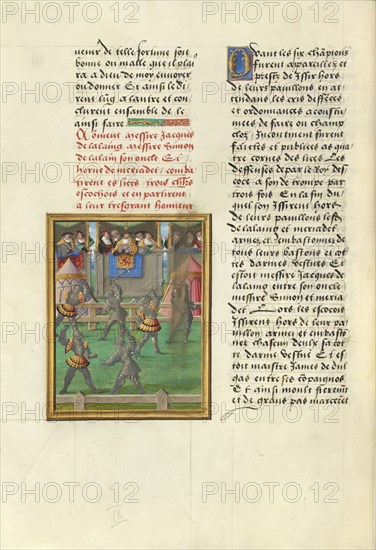 neur de telle fortune soit
bonne ou malle que il plai
ra a dieu de moy envoyer
ou donner Et ainsi le di
rent lun a lautre et con
clurent ensamble de le
ainsi faire
Coment messire Jacques
de lalaing messire Simon
de lalain son oncle Et
herue de meriadet comba
tirent es lices trois chrs
escochois et en partirent
a leur tresgrant honneur
Quant les six champions
furent appareilliez et
prestz de issir hors
de leurs pavillons en at
tendans les cris deffences
et ordonnances acoustu
mees de faire ou champ
clos Incontinent furent
faictes et publiees as qua
tre cornes des lices Les
deffenses de par le Roy des
coce a son de trompe par
trois fois Et en la fin du
quel son issirent hors
de leurs pavillons lesdis
de lalaing et meriadet
armez et embastonnez de
tous leurs bastons et cot
tes darmes vestues Et
estoit messire Jacques de
lalaing entre son oncle
messire Simon et meria
det Lors les escocois
issirent hors de leur pa
villon armez et embaston
nez chascun deulx sa cot
te darme vestue Et es
toit maistre James de du
glas entre ses compaignons
Et ainsi moult fierement
et de grans pas marcerent
PHOTO12